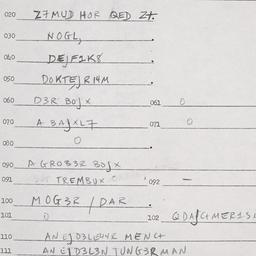 020 Z7MUD HOR QED Z7.
030 NOGL,
040 DEJF1K8
050 DOKTEJRH4M
060 D3R BOJX 061 0
070 A BAJXL7 071 0
080 0
090 A GROB3R BOJX
091 TREMBUX 092 -
100 MOG3R / DAR
101 0 102
110 MENCH
111 JUNG3R MAN